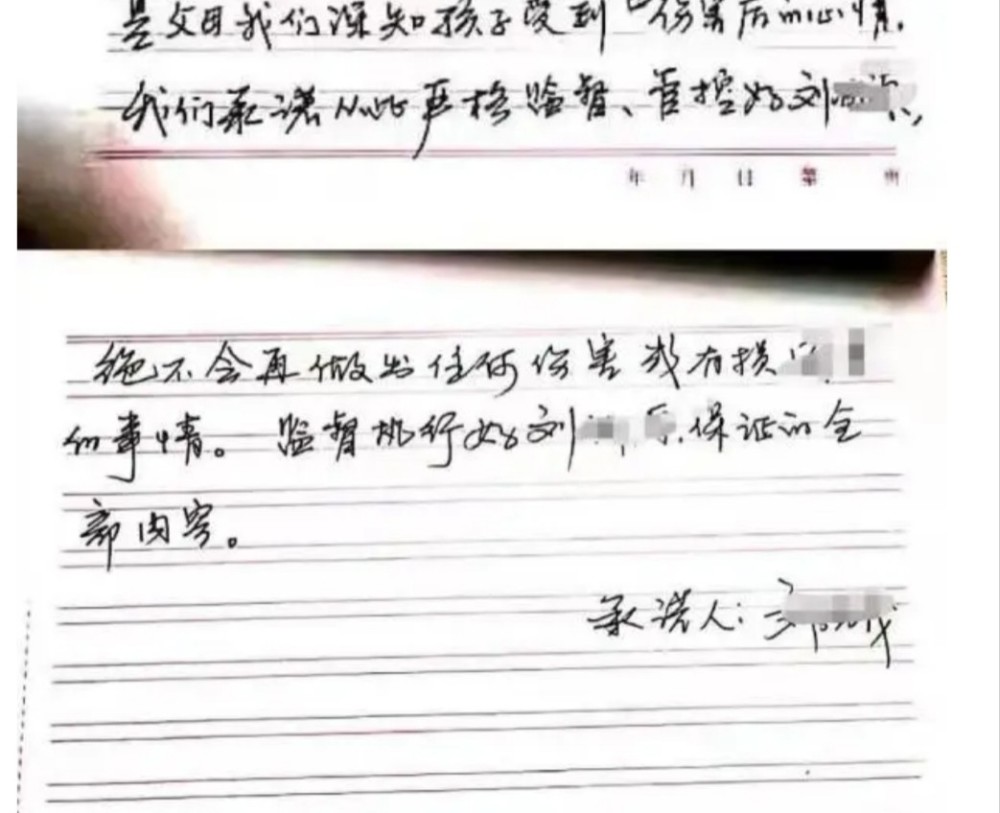 是父母我们深知孩子受到 伤害后的心情.
我们承诺从此严格监督、管控好刘
年 月 日 第
绝不会再做出任何伤害或有损
的事情。监督执行好刘 保证的全
部内容。
承诺人: